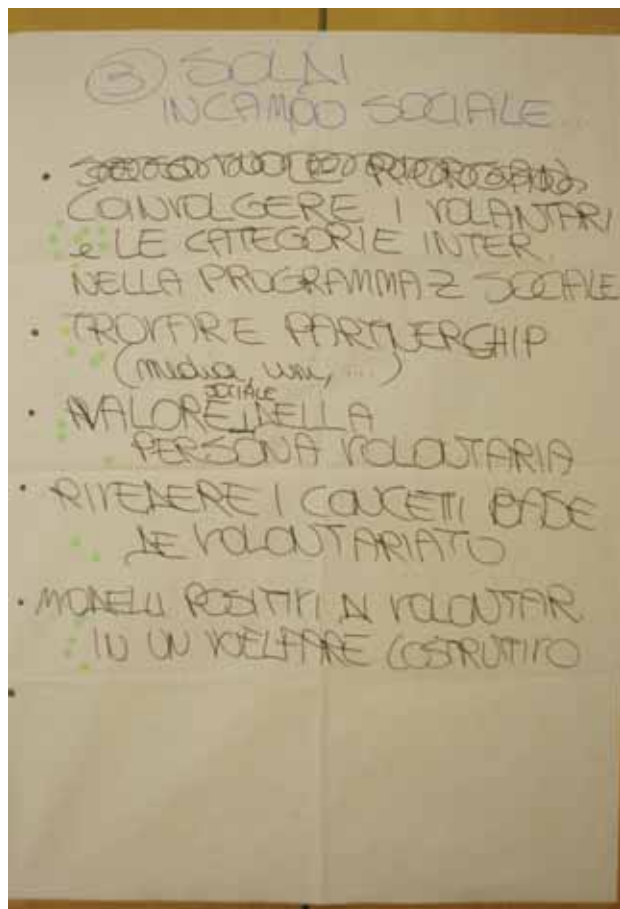 ③ SOLDI
IN CAMPO SOCIALE...
• COINVOLGERE I VOLANTARI
e LE CATEGORIE INTER.
NELLA PROGRAMMAZ SOCIALE
• TROVARE PARTNERSHIP
(media, uni, ...)
• VALORE SOCIALE DELLA
PERSONA VOLONTARIA
• RIVEDERE I CONCETTI BASE
DE VOLONTARIATO
• MODELLI POSITIVI DI VOLONTAR
IN UN WELFARE COSTRUTTIVO